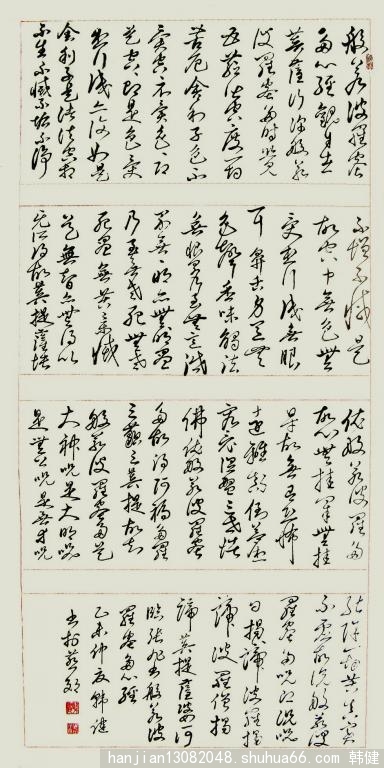 般若波羅蜜
多心經觀自在
菩薩行深般若
波羅蜜多時照見
五蘊皆空度一切
苦厄舍利子色不
異空空不異色色即
是空空即是色受
想行識亦復如是
舍利子是諸法空相
不生不滅不垢不淨
不增不減是
故空中無色無
受想行識無眼
耳鼻舌身意無
色聲香味觸法
無眼界乃至無意識
界無無明亦無無明盡
乃至無老死亦無老
死盡無苦集滅
道無智亦無得以
無所得故菩提薩埵
依般若波羅蜜多
故心無挂礙無挂
礙故無有恐怖
遠離顛倒夢想
究竟涅槃三世諸
佛依般若波羅蜜
多故得阿耨多羅
三藐三菩提故知
般若波羅蜜多是
大神咒是大明咒
是無上咒是無等等咒
能除一切苦真實
不虛故說般若波
羅蜜多咒即說咒
曰揭諦揭諦波羅揭
諦波羅僧揭
諦菩提薩婆訶
臨張旭書般若波
羅蜜多心經
乙未仲夏韓健
書於燕郊
hanjian13082048.shuhua66.com 韩健